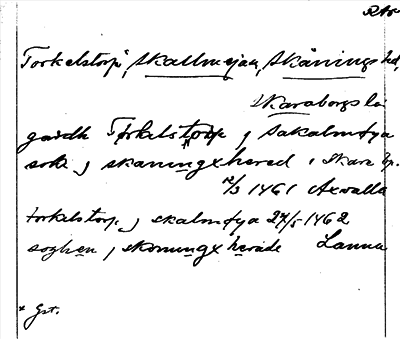 RAp
Torkelstorp, Skallmeja sn, Skånings hd,
Skaraborgs län
gardh Torkelstorp j Sakalmøya
sokn j skaningxhered i Skare bp.
12/3 1461 Axvalla
torkelstorp j skalmøya 24/5 1462
soghen j skonungx herade Lanna
* Gst.